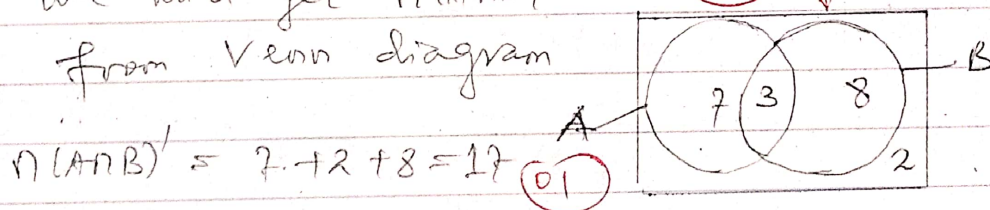 from Venn diagram
n(A∩B)' = 7+2+8=17
01
A
7
3
8
B
2